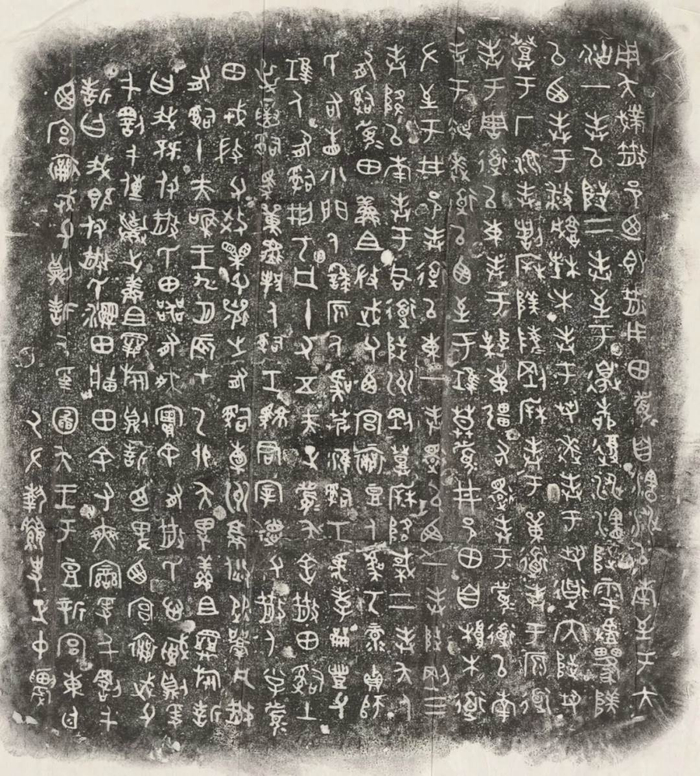 用夨撲散邑乃即散用田眉自瀗涉以南至于大
沽一奉以陟二奉至于邊柳復涉瀗陟雩
以西奉于播城楮木奉于芻逨奉于芻道内陟芻
登于厂湶奉割柝陵陵剛柝奉于單道奉于原道
奉于周道以東奉于棹東彊右還奉于眉道以南
奉于逨道以西至于堆莫眉井邑田自根木道
左至于井邑奉道以東一奉還以西一奉陟剛三
奉降以南奉于同道陟州剛登柝降棫二奉夨人
有嗣眉田鮮且微武父西宮襄豆人虞丂彔貞師
氏右眚小門人繇原人虞艿淮嗣工虎孝龠豐父
堆人有嗣刑丂凡十又五夫正眉夨舍散田嗣土
屰寅嗣馬單邦人嗣工駷君宰德父散人小子眉
田戎微父效果父襄之有嗣橐州就焂從凡散
有嗣十夫唯王九月辰才乙卯夨卑鮮且旅誓
曰我既付散氏田器有爽實余有散氏心賊則爰
千罰千傳棄之鮮且旅則誓乃卑西宮襄武父
誓曰我既付散氏濕田畛田余有爽變爰千罰千
西宮襄武父則誓厥受圖夨王于豆新宮東廷
厥左執要史正中農